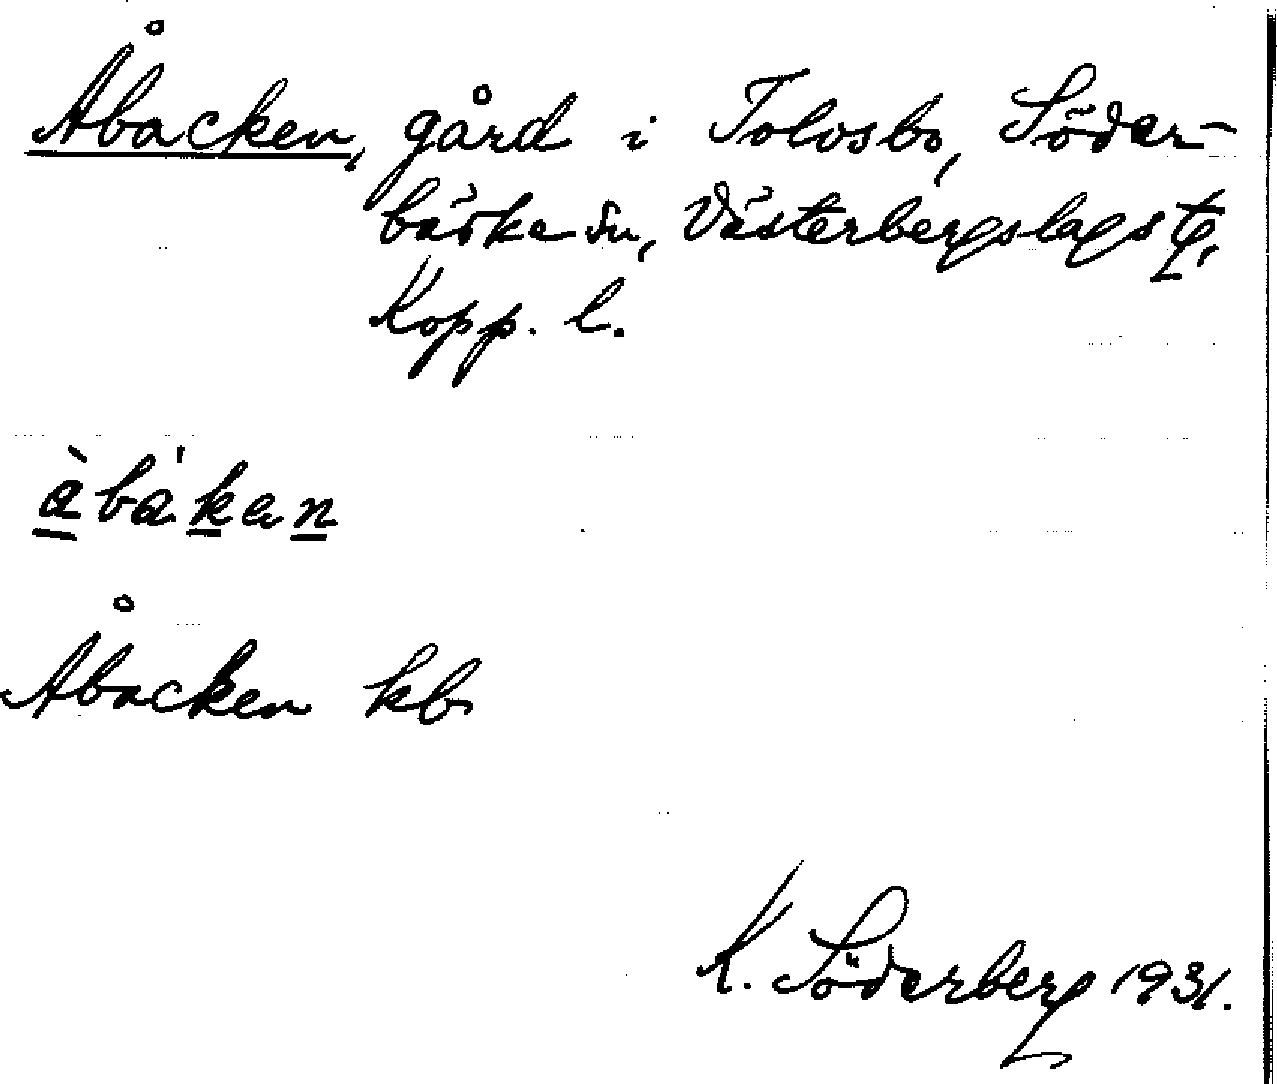 Åbacken, gård i Tolvsbo, Söder-
bärke sn, Västerbergslags tg,
Kopp. l.
àbákan
Åbacken kb
K. Söderberg 1931.